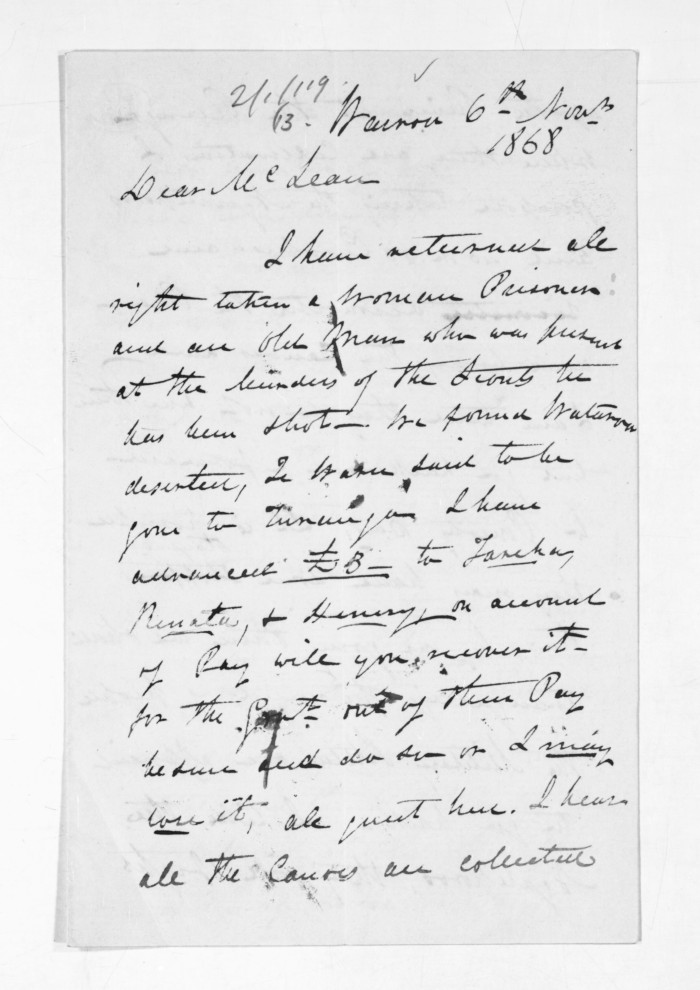 2/1/119
13. Wairoa 6th Novr
1868
Dear McLean
I have returned all
right taken a Woman Prisoner
and an Old Man who was present
at the murders of the Scouts he
has been shot - We found
deserted, Te Waru said to be
gone to Turanga. I have
advanced £3 - to Tareha,
Renata, & Henery, on account
of Pay will you recover it -
for the Govt out of their Pay
be sure and do so or I may
lose it, all quiet here. I hear
all the Canoes are collected